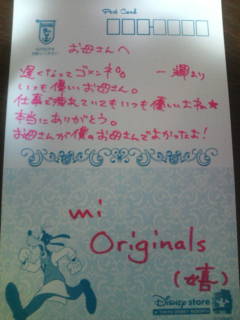 Post Card
お母さんへ
遅くなってゴメンネ。 一輝より
いつも優しいお母さん。
仕事で疲れていてもいつも優しいよね★
本当にありがとう。
お母さんが僕のお母さんでよかったよ!
mi
Originals
(嬉)
Disney store